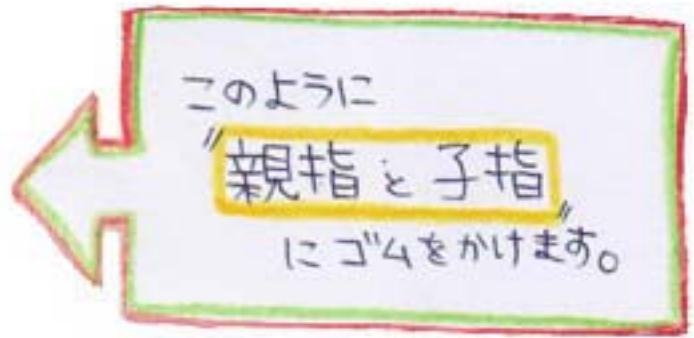 このように
"親指と子指"
にゴムをかけます。